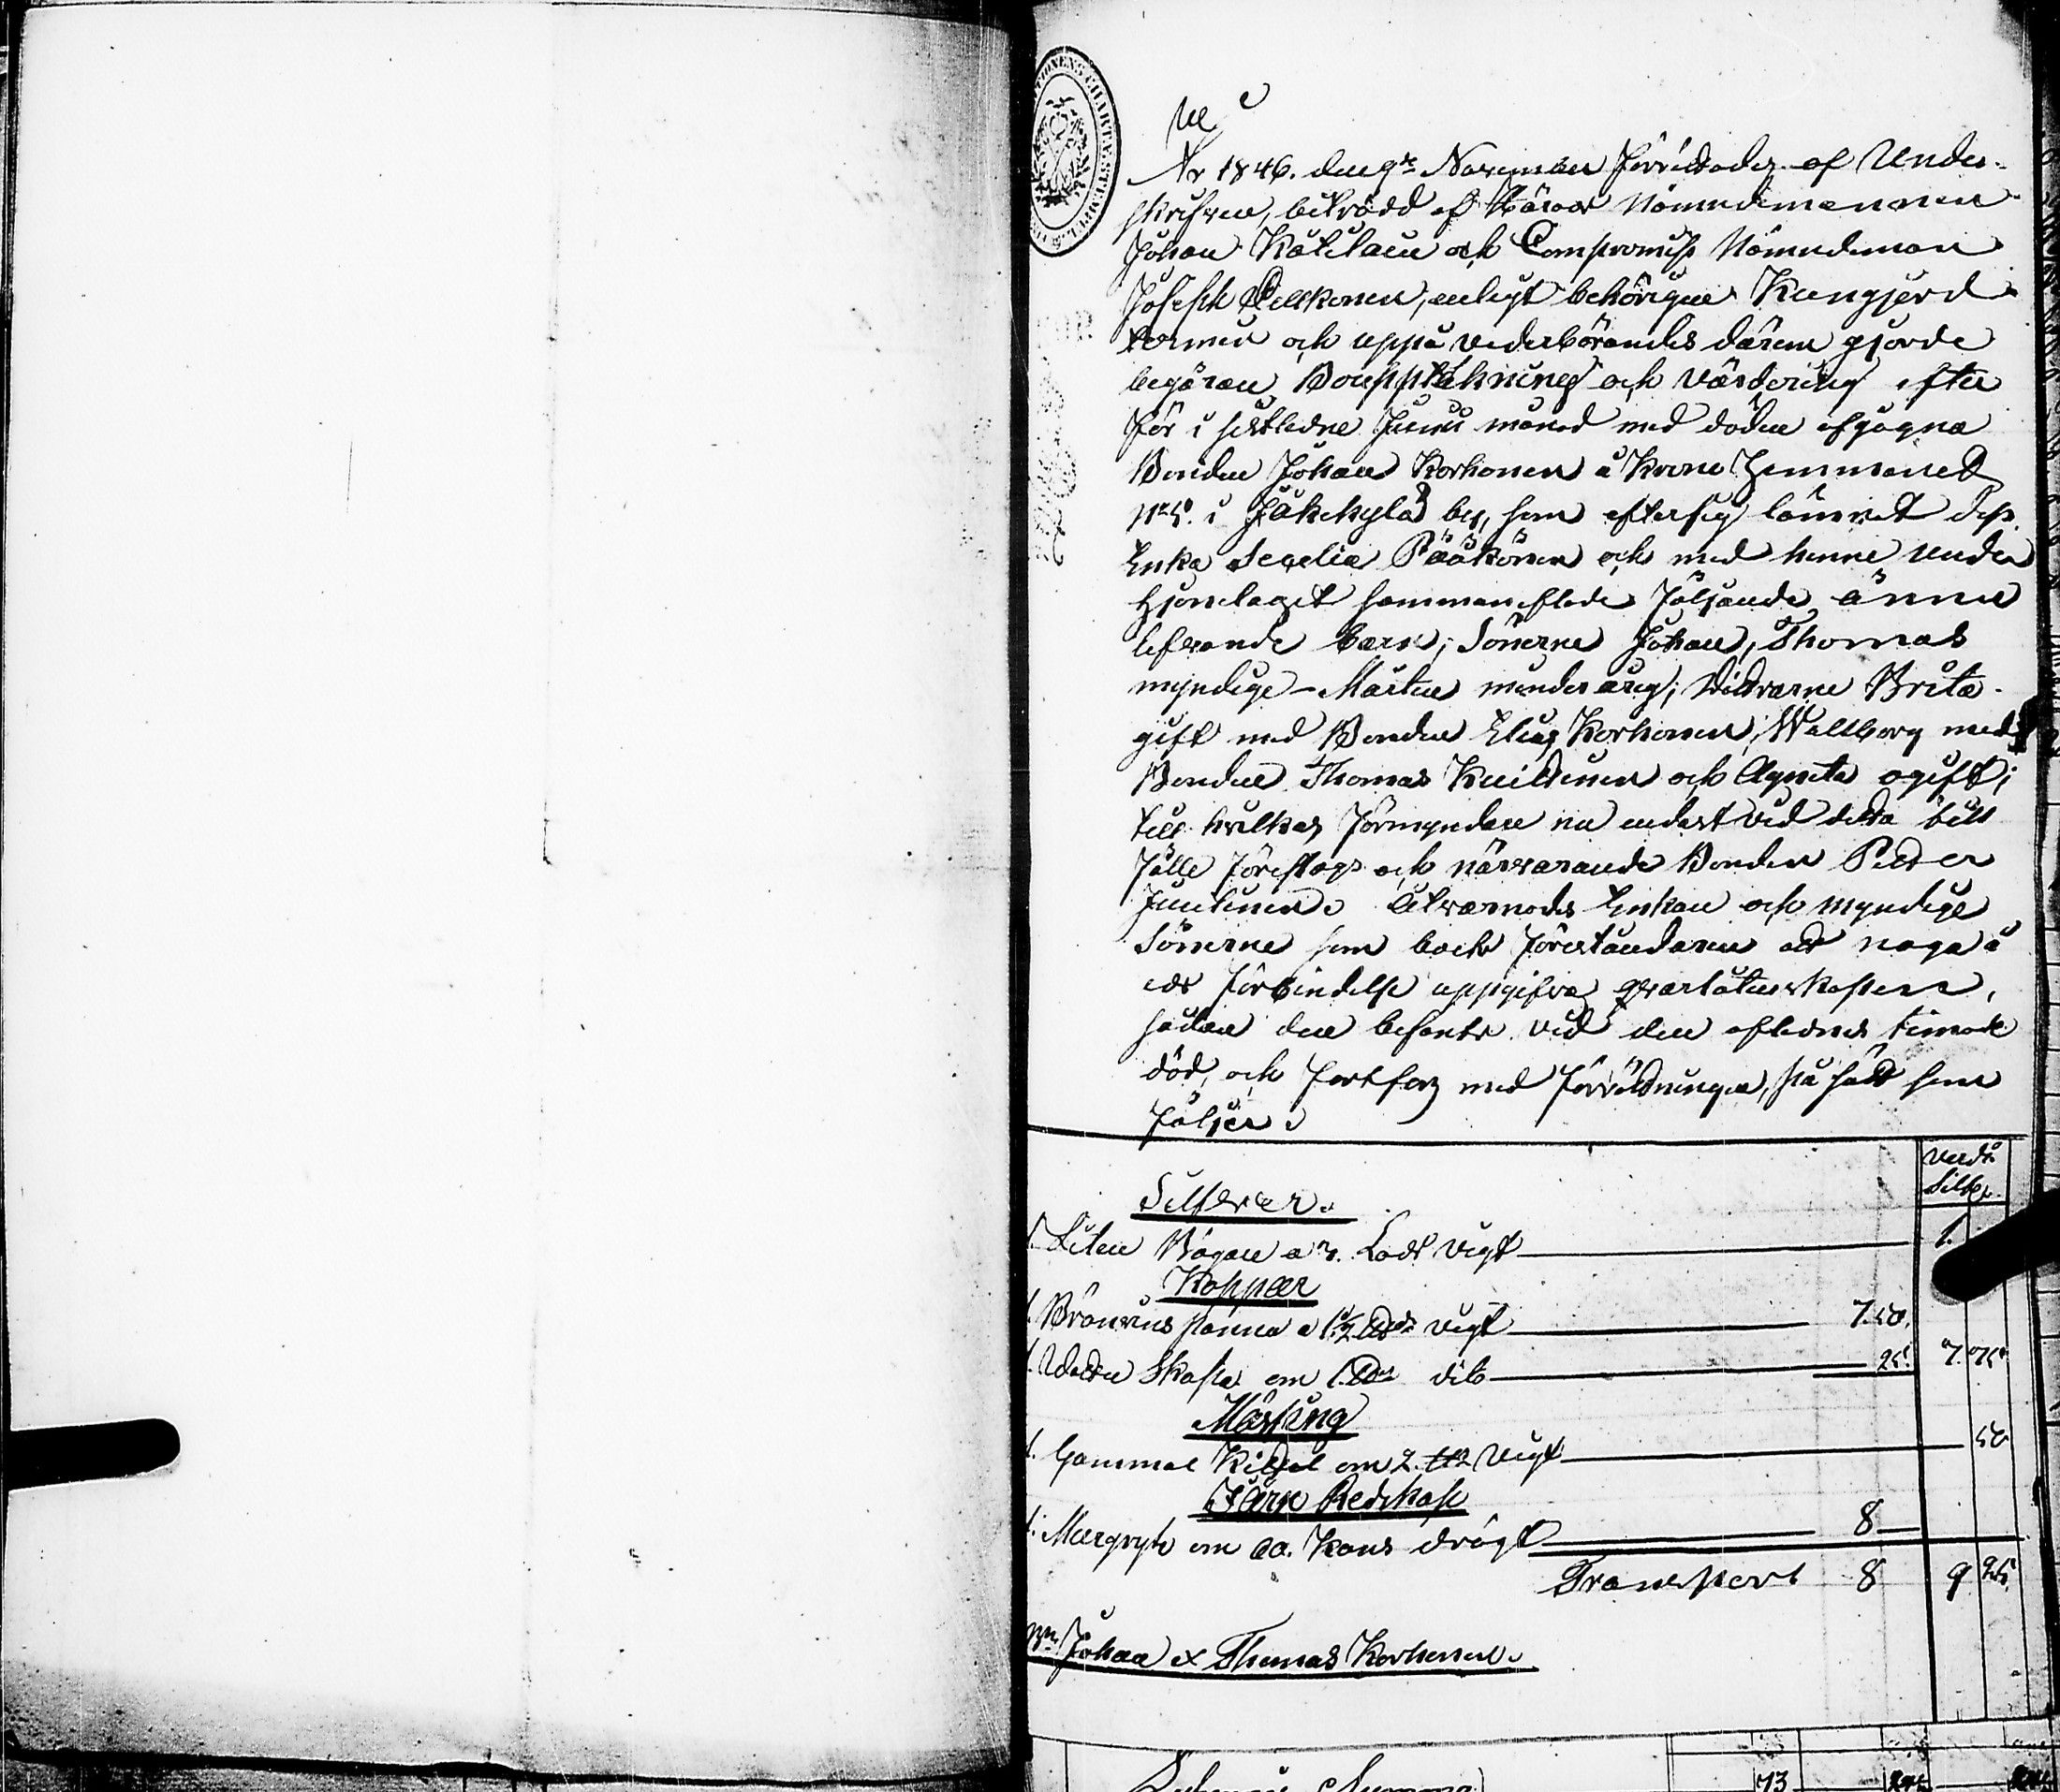 År 1846. den 9de November förrättades af Under-
skrifven, biträdd af Härads Nämndemannen
Johan Kätilain och Compromiss Nämndeman
Joseph Pellkonen, enligt behörigen Kungjord
termin och uppå vederbörandes därom gjorde
begäran, Bouppteckning och värdering efter
för i sistledne Junii månad med döden afgågna
Bonden Johan Korhonen å Krono Hemmanet
No 5. i Jäkekylä by, som efter sig lämnat dess
Enka Secelia Pääkönen och med henne under
Hjonelaget sammanaflade följande ännu
lefvande barn; Sönerne Johan, Thomas
myndige – Mårten minderårig; döttrarne Brita
gift med Bonden Elias Korhonen, Wallborg med
Bonden Thomas Kuittinen och Agneta ogift;
till hvilkas förmyndare nu endast vid detta till
fälle föreslogs och närvarande Bonden Petter
Juutinen. Åtvarnades Enkan och myndige
Sönerne som boets föreståndare att noga å
eds förbindelse uppgifva qvarlåtenskapen,
sådan den befants vid den aflednes timade
död, och fortfor med förrättningen, på sätt som
följer.
Silfver.
Värde
Silfver
1. Liten Bägare a 3. Lods vigt 1.
Koppar
1. Brännvins panna a 1 1/2 vigt 7. 50.
1. Skopa om 1. dito 25. 7. 75
Mässing
1. Gammal Kittel om 2. vigt 50
Järn Redskap
1. Murgryta om 20. Kans drägt 8
Transport 8 9 25
Bn. Johan & Thomas Korhonen.
Summa
73